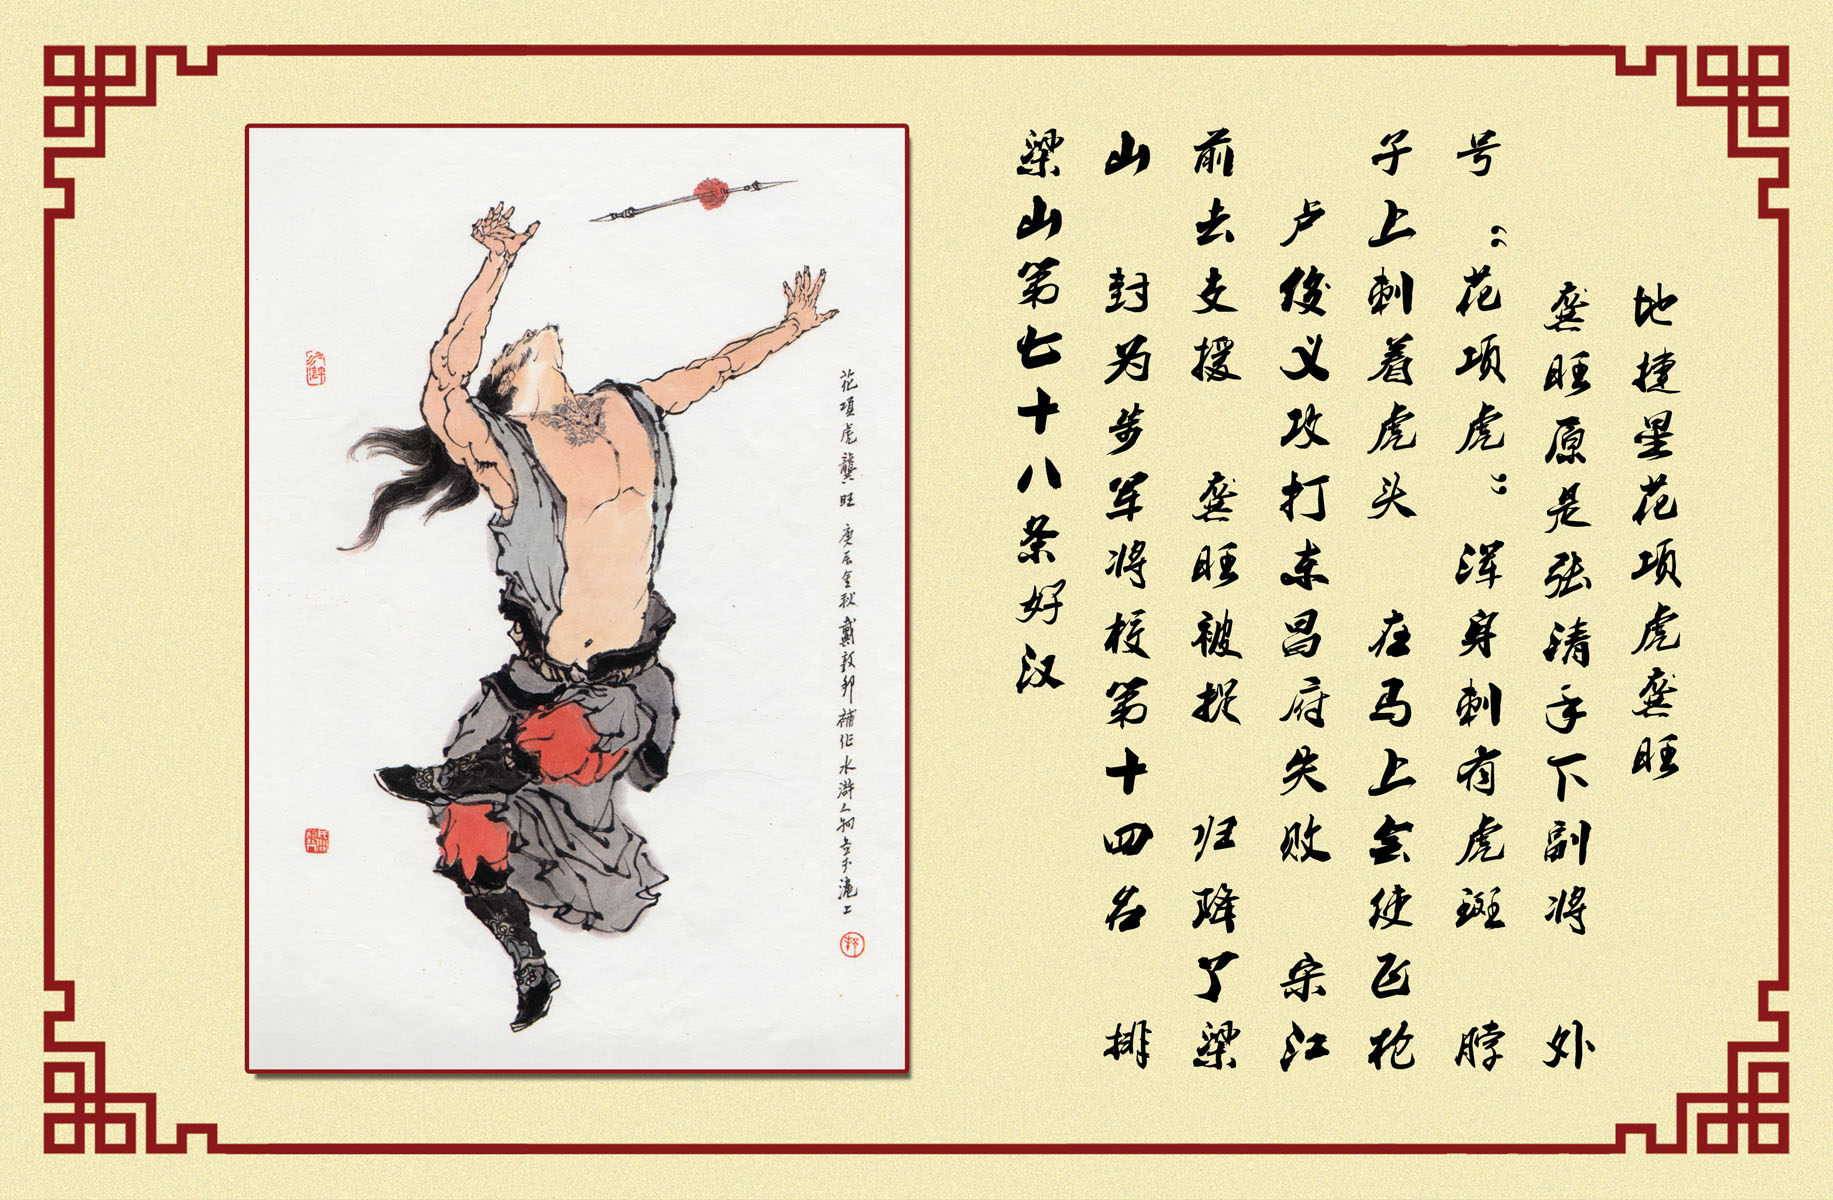 地捷星花项虎龚旺
龚旺原是张清手下副将 外
号“花项虎” 浑身刺有虎斑 脖
子上刺着虎头 在马上会使飞枪
卢俊义攻打东昌府失败 宋江
前去支援 龚旺被捉 归降了梁
山 封为步军将校第十四名 排
梁山第七十八条好汉
花項虎龔旺 庚辰金秋戴敦邦補作水滸人物 於滬上